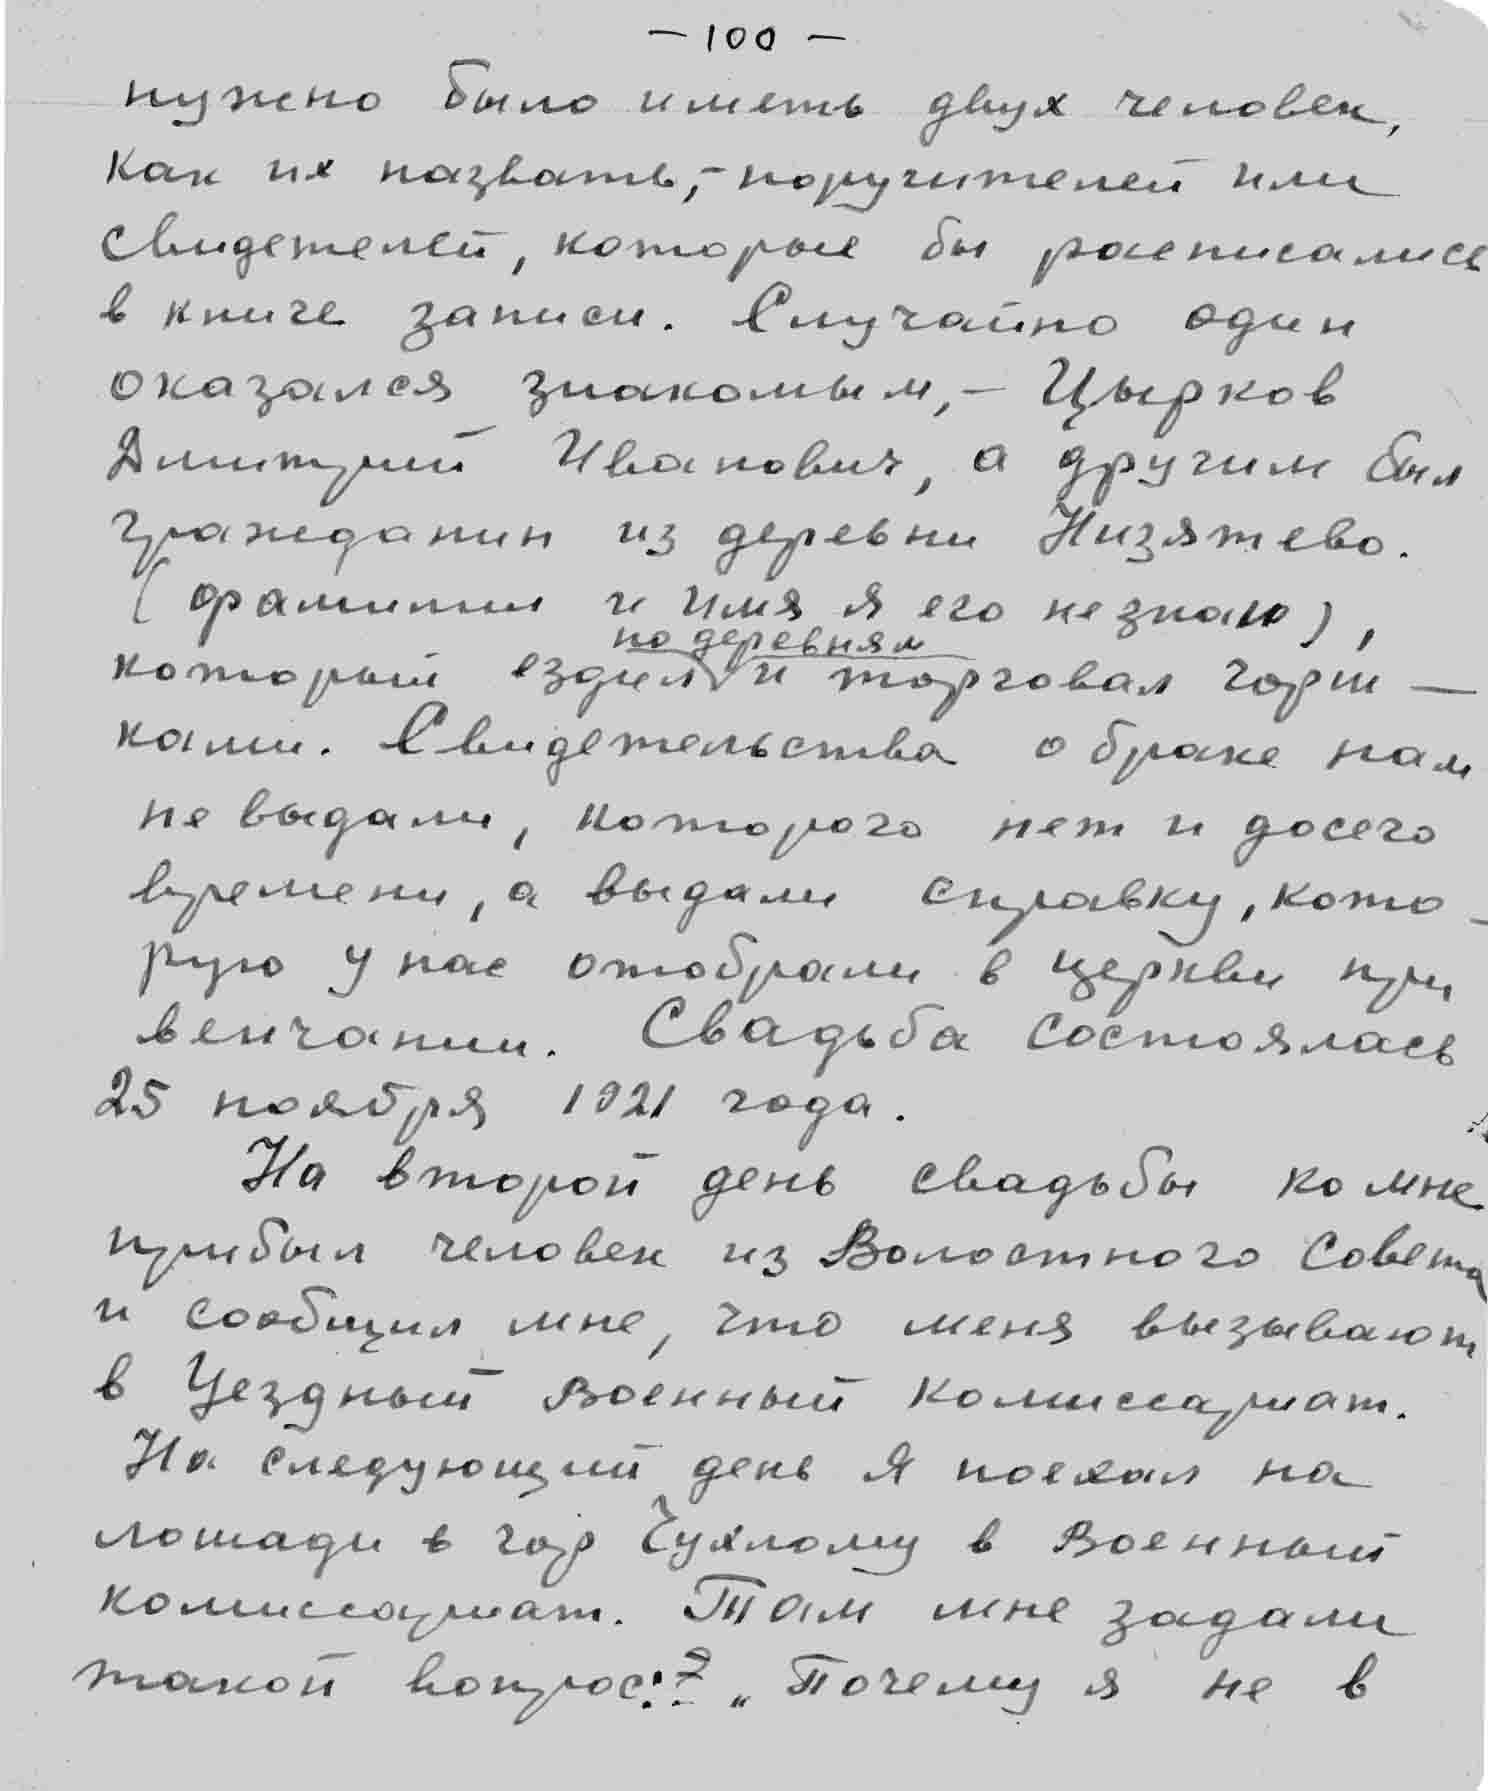 - 100 -
нужно было иметь двух человек,
как их назвать,- поручителей или
свидетелей, которые бы расписались
в книге записи. Случайно один
оказался знакомым,- Цырков
Дмитрий Иванович, а другим был
гражданин из деревни Низятево.
(фамилии и имя я его не знаю),
по деревням
который ездил и торговал горш-
ками. Свидетельства о браке нам
не выдали, которого нет и досего
времени, а выдали справку, кото-
рую у нас отобрали в церкви при
венчании. Свадьба состоялась
25 ноября 1921 года.
На второй день свадьбы ко мне
прибыл человек из Волостного Совета
и сообщил мне, что меня вызывают
в Уездный Военный комиссариат.
На следующий день я поехал на
лошади в гор Чухлому в Военный
комиссариат. Там мне задали
такой вопрос:? „Почему я не в